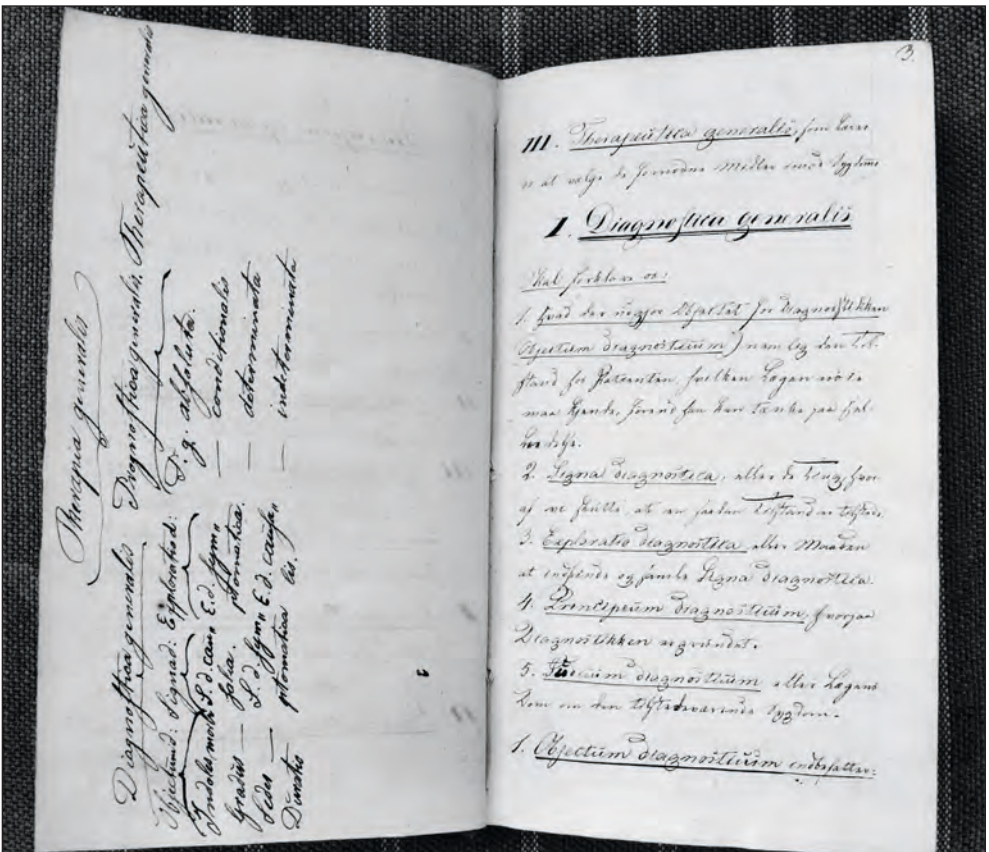 Therapia generalis
Diagnostica generalis Prognostica generalis. Therapeutica generalis
Objectumd: Signad: Exploratiod: P. g. absoluta.
Indoles, morb S. d. cau„ E. d. sym„ — conditionalis
salia. ptomatica.
Gradus — S. d. sym„ E. d. causa„ — determinata
Sedes — ptomatica lis. — indeterminata
Duratio
3.
III. Therapeutica generalis, som lærer
os at vælge de fornødne Midler imod Sygdomme
I. Diagnostica generalis
Skal forklare os:
1. hvad der udgjør Objectet for Diagnostikken
(Objectum diagnosticum) nemlig den Til-
stand hos Patienten, hvilken Lægen nøie
maa kjende, førend han kan tænke paa Hel-
bredelse.
2. Signa diagnostica, eller de Ting, hvor-
af vi slutte, at en saadan Tilstand er tilstede.
3. Exploratio diagnostica, eller Maaden
at udfinde og samle Signa diagnostica.
4. Principium diagnosticum, hvorpaa
Diagnostikken er grundet.
5. Judicium diagnosticum eller Lægens
Dom om den tilstedeværende Sygdom.
1. Objectum diagnosticum indbefatter: